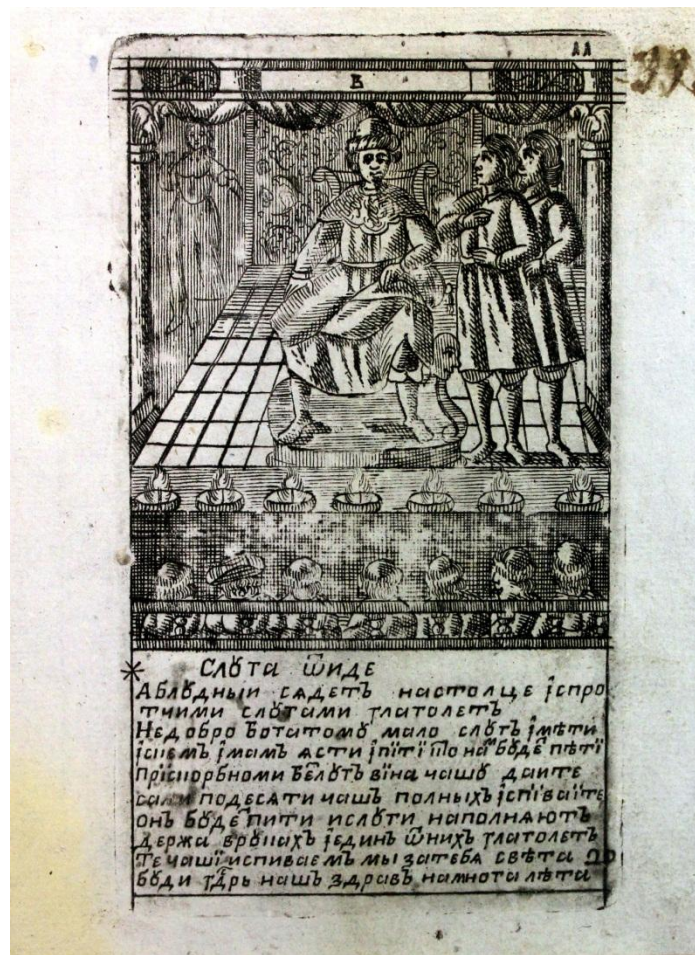 11
В
39
* Слꙋга ѿиде
А блꙋдныи сядетъ настолце іспро
тчими слꙋгами глаголетъ
Недобро богатомꙋ мало слꙋгъ імѣти
імамъ ясти іпїтї бꙋде пѣтї
Прїскорбноми вїна чашꙋ даите
сами подесяти чашъ полныхъ іспїваїте
онъ бꙋде пити ислꙋги наполняютъ
держа врꙋкахъ іединъ ѿнихъ глаголетъ
Те чашї испиваемъ мы затебя свѣта
бꙋди гдрь нашъ здравъ намнога лѣта